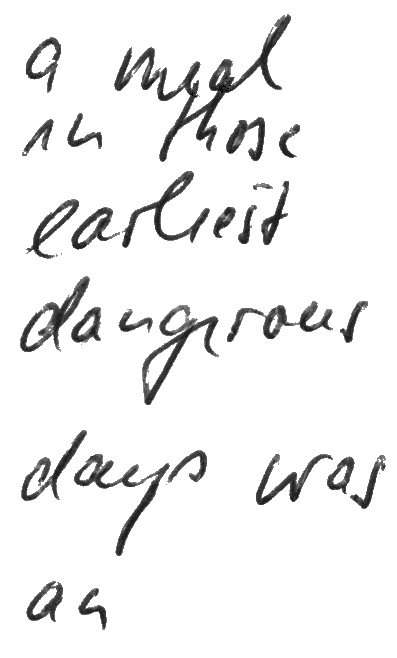 a meal
in those
earliest
dangerous
days was
an